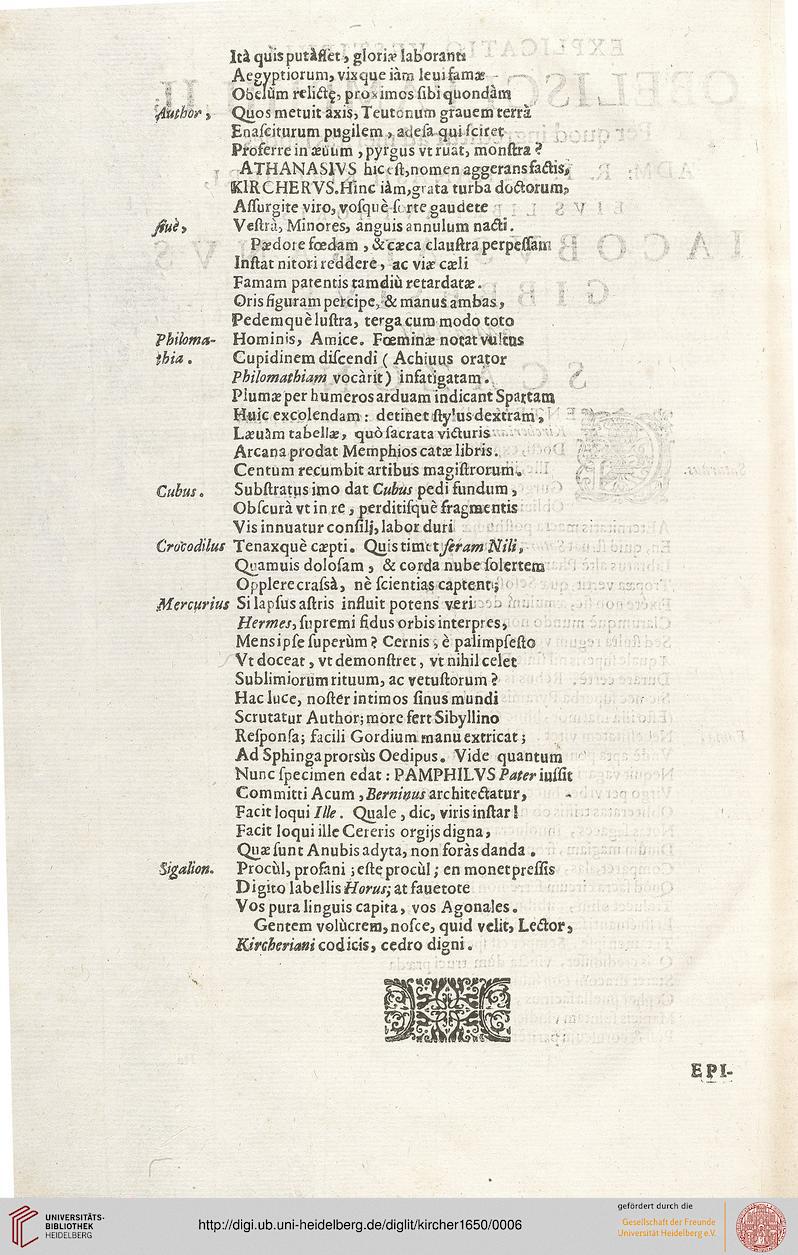 Ità quis putàſſet, gloriæ laboranti
Aegyptiorum, vixque iàm leui famæ
Obelùm relictę, proximos ſibi quondàm
Author, Quos metuit axis, Teutonum grauem terrà
Enaſciturum pugilem, adeſa qui ſciret
Proferre in æuum, pyrgus vt ruat, monſtra?
ATHANASIVS hic eſt, nomen aggerans factis,
KIRCHERVS. Hinc iàm, grata turba doctorum,
Aſſurgite viro, voſquè ſorte gaudete
ſiuè, Veſtrà, Minores, anguis annulum nacti.
Pædore fœdam, & cæca clauſtra perpeſſam
Inſtat nitori reddere, ac viæ cæli
Famam patentis tamdiù retardatæ.
Oris figuram percipe, & manus ambas,
Pedemquè luſtra, terga cum modo toto
Philoma- Hominis, Amice. Fœminæ notat vultus
thia. Cupidinem diſcendi (Achiuus orator
Philomathiam vocàrit) infatigatam.
Plumæ per humeros arduam indicant Spartam
Huic excolendam: detinet ſtylus dextram,
Læuàm tabellæ, quò ſacrata victuris
Arcana prodat Memphios catæ libris.
Centum recumbit artibus magiſtrorum.
Cubus. Subſtratus imo dat Cubus pedi fundum,
Obſcurà vt in re, perditiſquè fragmentis
Vis innuatur conſilj, labor duri
Crocodilus Tenaxquè cæpti. Quis timet feram Nili,
Quamuis doloſam, & corda nube ſolertem
Opplere craſsà, nè ſcientias captent;
Mercurius Si lapſus aſtris influit potens veri
Hermes, ſupremi fidus orbis interpres,
Mens ipſe ſuperùm? Cernis, è palimpſeſto
Vt doceat, vt demonſtret, vt nihil celet
Sublimiorum rituum, ac vetuſtorum?
Hac luce, noſter intimos ſinus mundi
Scrutatur Author; more fert Sibyllino
Reſponſa; facili Gordium manu extricat;
Ad Sphinga prorsùs Oedipus. Vide quantum
Nunc ſpecimen edat: PAMPHILVS Pater iuſſit
Committi Acum, Berninus architectatur,
Facit loqui Ille. Quale, dic, viris inſtar!
Facit loqui ille Cereris orgijs digna,
Quæ ſunt Anubis adyta, non foràs danda.
Sigalion. Procùl, profani; eſte procùl; en monet preſſis
Digito labellis Horus; at fauetote
Vos pura linguis capita, vos Agonales.
Gentem volùcrem, noſce, quid velit, Lector,
Kircheriani codicis, cedro digni.
EPI-
UNIVERSITÄTS-
BIBLIOTHEK
HEIDELBERG
http://digi.ub.uni-heidelberg.de/diglit/kircher1650/0006
gefördert durch die
Gesellschaft der Freunde
Universität Heidelberg e.V.